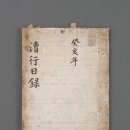 癸亥年
瀆行日錄